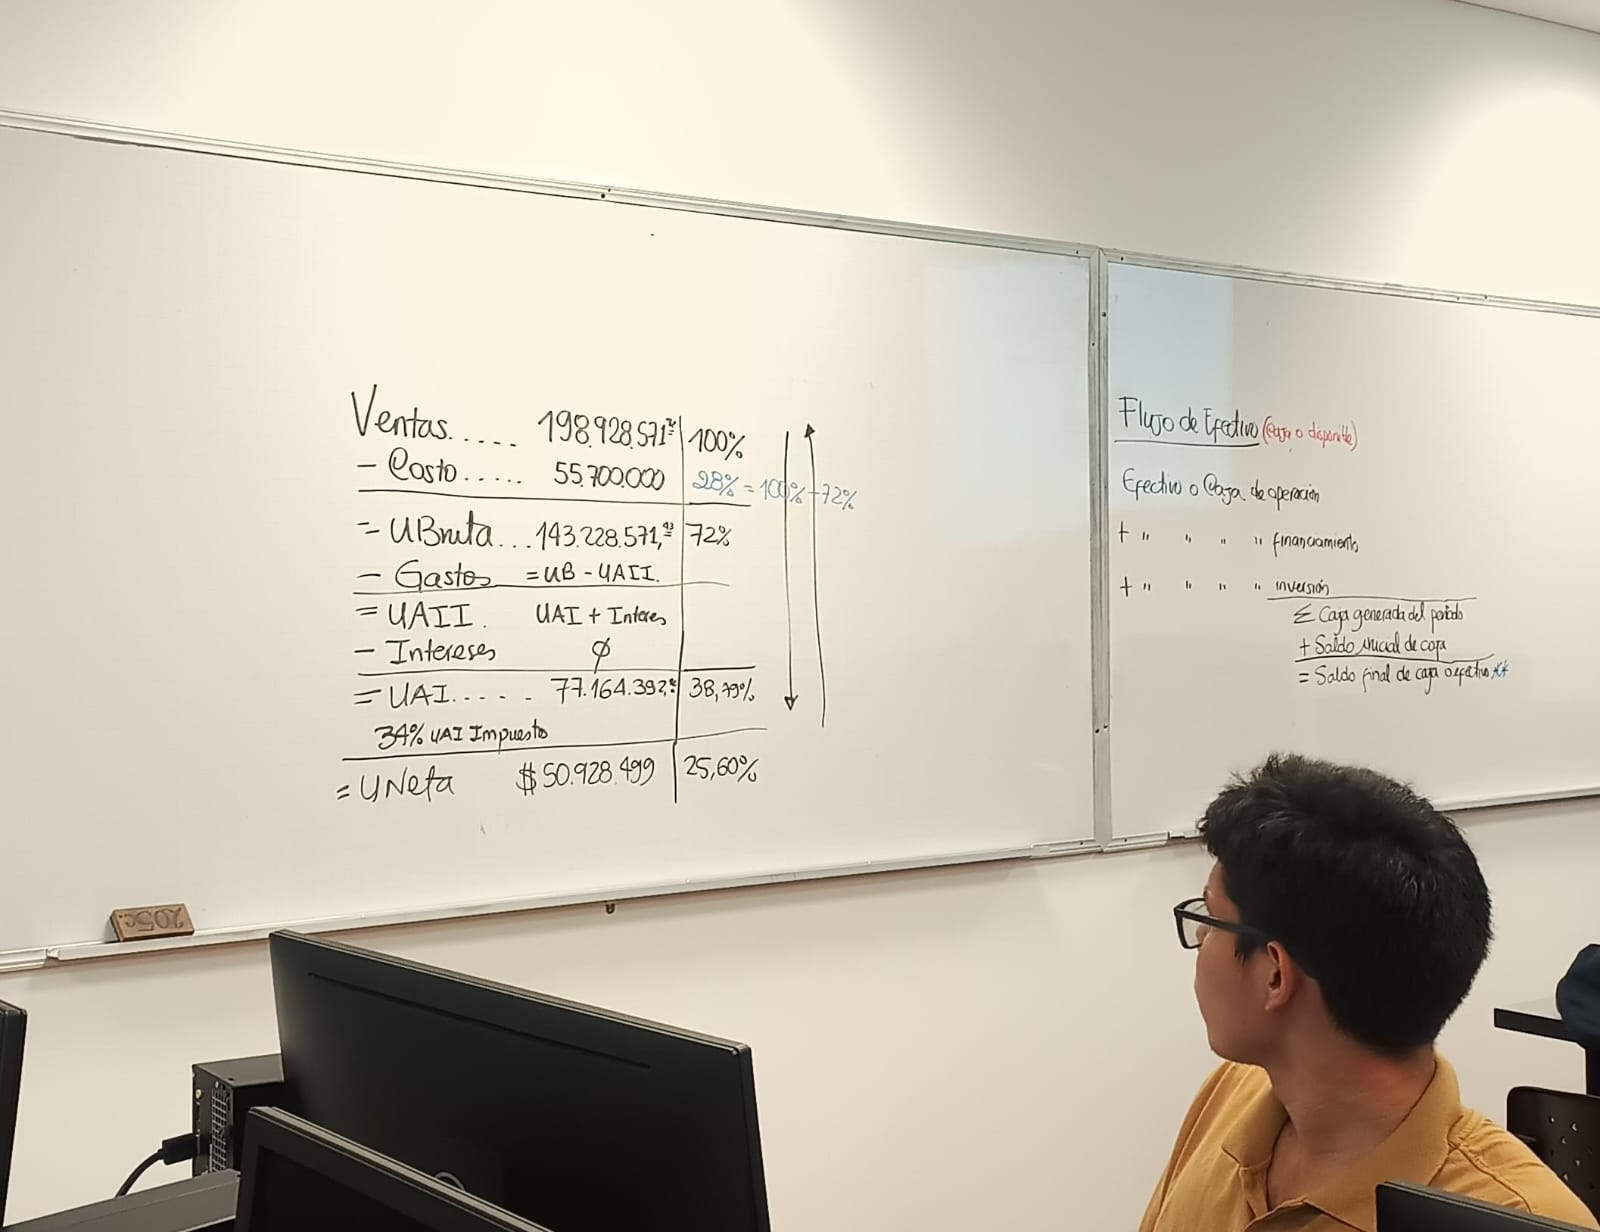 Ventas..... 198.928.571 100%
- Costo..... 55.700.000 28% = 100% - 72%
= UBruta... 143.228.571,43 72%
- Gastos = UB - UAII.
= UAII. UAI + Interes
- Intereses ϕ
= UAI..... 77.164.392 38,79%
34% UAI Impuesto
= UNeta $50.928.499 25,60%
Flujo de Efectivo (caja o disponible)
Efectivo o Caja de operación
+ " " " " financiamiento
+ " " " " inversión
Σ Caja generada del periodo
+ Saldo inicial de caja
= Saldo final de caja o efectivo **
205C